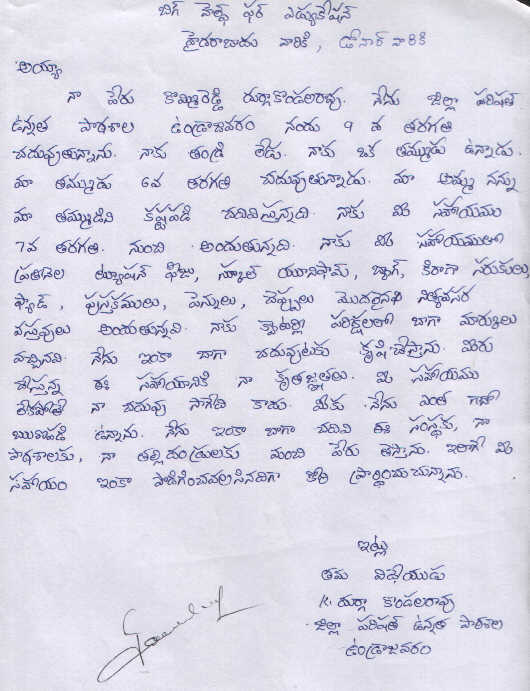 బిగ్ హెల్ప్ ఫర్ ఎడ్యుకేషన్
హైదరాబాదు వారికి, డోనార్ వారికి
అయ్యా
నా పేరు కొమ్మిరెడ్డి దుర్గాకొండలరావు. నేను జిల్లా పరిషత్
ఉన్నత పాఠశాల ఉండ్రాజవరం నందు 9 వ తరగతి
చదువుతున్నాను. నాకు తండ్రి లేడు. నాకు ఒక తమ్ముడు ఉన్నాడు.
మా తమ్ముడు 6వ తరగతి చదువుతున్నాడు. మా అమ్మ నన్ను
మా తమ్ముడిని కష్టపడి చదివిస్తున్నది. నాకు మీ సహాయము
7వ తరగతి. నుంచి అందుతున్నది. నాకు మీ సహాయములో
ప్రతినెల ట్యూషన్ ఫీజు, స్కూల్ యూనిఫామ్, బ్యాగ్, కిరాణా సరుకులు,
ప్యాడ్, పుస్తకములు, పెన్నులు, చెప్పులు మొదలైనవి నిత్యవసర
వస్తువులు అందుతున్నవి. నాకు క్వాటర్లీ పరిక్షలలో బాగా మార్కులు
వచ్చినవి. నేను ఇంకా బాగా చదువుటకు కృషి చేస్తాను. మీరు
చేస్తున్న ఈ సహాయానికి నా కృతజ్ఞతలు. మీ సహాయము
లేకపోతే నా చదువు సాగేది కాదు. మీకు నేను ఎంత గానో
ఋణపడి ఉన్నాను. నేను ఇంకా బాగా చదివి ఈ సంస్థకు, నా
పాఠశాలకు, నా తల్లిదండ్రులకు మంచి పేరు తెస్తాను. ఇలాగే మీ
సహాయం ఇంకా పొడిగించవలసినదిగా కోరి ప్రార్థించుచున్నాను.
ఇట్లు
తమ విధేయుడు
K. దుర్గా కొండలరావు
జిల్లా పరిషత్ ఉన్నత పాఠశాల
ఉండ్రాజవరం